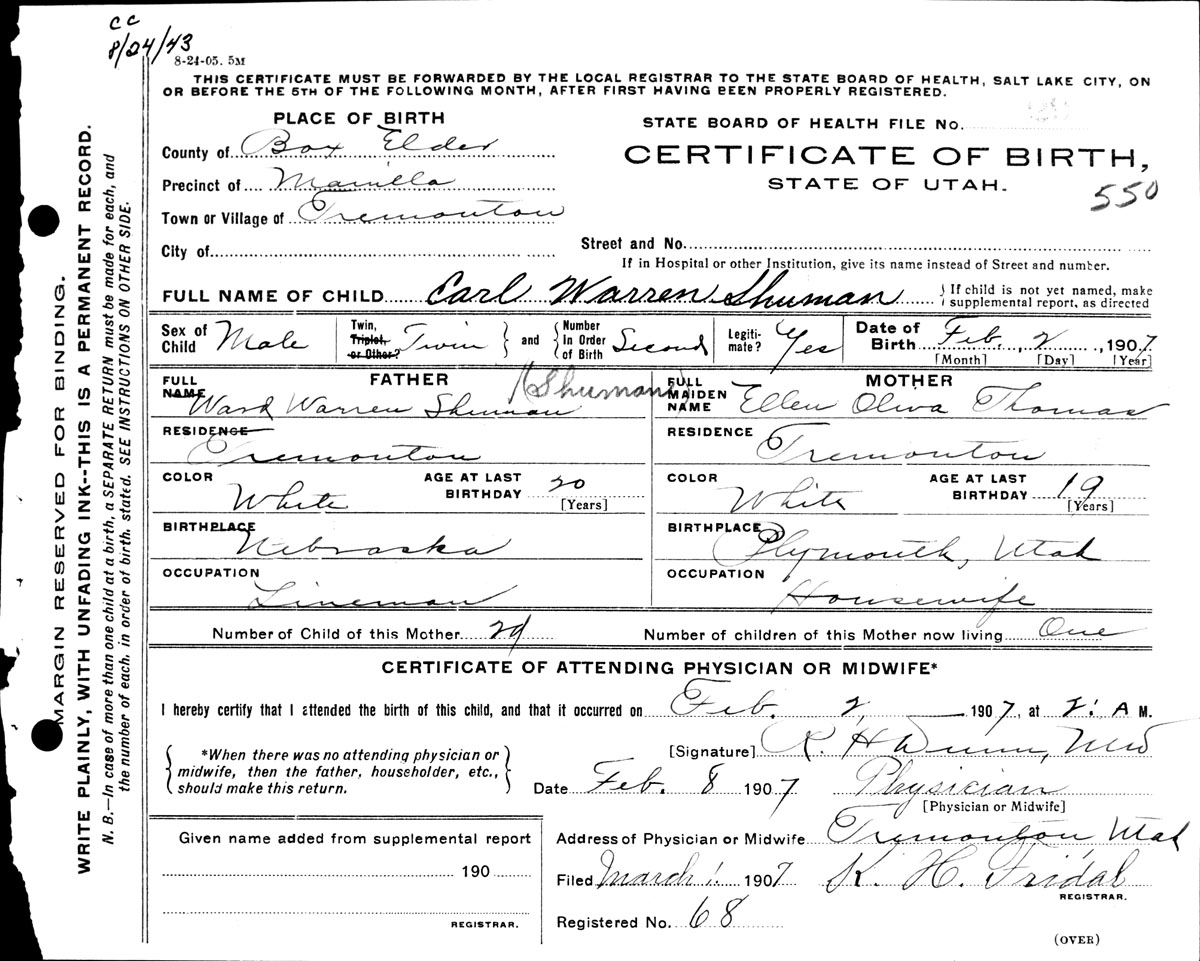 CC
8/24/43
8-24-05. 5M
THIS CERTIFICATE MUST BE FORWARDED BY THE LOCAL REGISTRAR TO THE STATE BOARD OF HEALTH, SALT LAKE CITY, ON
OR BEFORE THE 5TH OF THE FOLLOWING MONTH, AFTER FIRST HAVING BEEN PROPERLY REGISTERED.
MARGIN RESERVED FOR BINDING.
WRITE PLAINLY, WITH UNFADING INK--THIS IS A PERMANENT RECORD.
N. B.—In case of more than one child at a birth, a SEPARATE RETURN must be made for each, and
the number of each, in order of birth, stated. SEE INSTRUCTIONS ON OTHER SIDE.
PLACE OF BIRTH
County of Box Elder
Precinct of Manilla
Town or Village of Tremonton
City of
STATE BOARD OF HEALTH FILE No.
CERTIFICATE OF BIRTH,
STATE OF UTAH.
550
Street and No.
If in Hospital or other Institution, give its name instead of Street and number.
FULL NAME OF CHILD Carl Warren Shuman { If child is not yet named, make
supplemental report, as directed
Sex of Child Male
Twin, Triplet, or Other? Twin } and { Number In Order of Birth Second
Legiti-mate? Yes
Date of Birth Feb. 2, 1907
[Month] [Day] [Year]
FATHER
FULL NAME Ward Warren Shuman (Shuman)
RESIDENCE Tremonton
COLOR White AGE AT LAST BIRTHDAY 20 [Years]
BIRTHPLACE Nebraska
OCCUPATION Lineman
MOTHER
FULL MAIDEN NAME Ellen Oliva Thomas
RESIDENCE Tremonton
COLOR White AGE AT LAST BIRTHDAY 19 [Years]
BIRTHPLACE Plymouth, Utah
OCCUPATION Housewife
Number of Child of this Mother 2d Number of children of this Mother now living One
CERTIFICATE OF ATTENDING PHYSICIAN OR MIDWIFE*
I hereby certify that I attended the birth of this child, and that it occurred on Feb. 2, 1907, at 2: A M.
{ *When there was no attending physician or
midwife, then the father, householder, etc.,
should make this return. }
[Signature] R. H. Dunn, MD
Date Feb. 8 1907 Physician
[Physician or Midwife]
Given name added from supplemental report
190
REGISTRAR.
Address of Physician or Midwife Tremonton Utah
Filed March 1. 1907 K. H. Fridal
REGISTRAR.
Registered No. 68
(OVER)